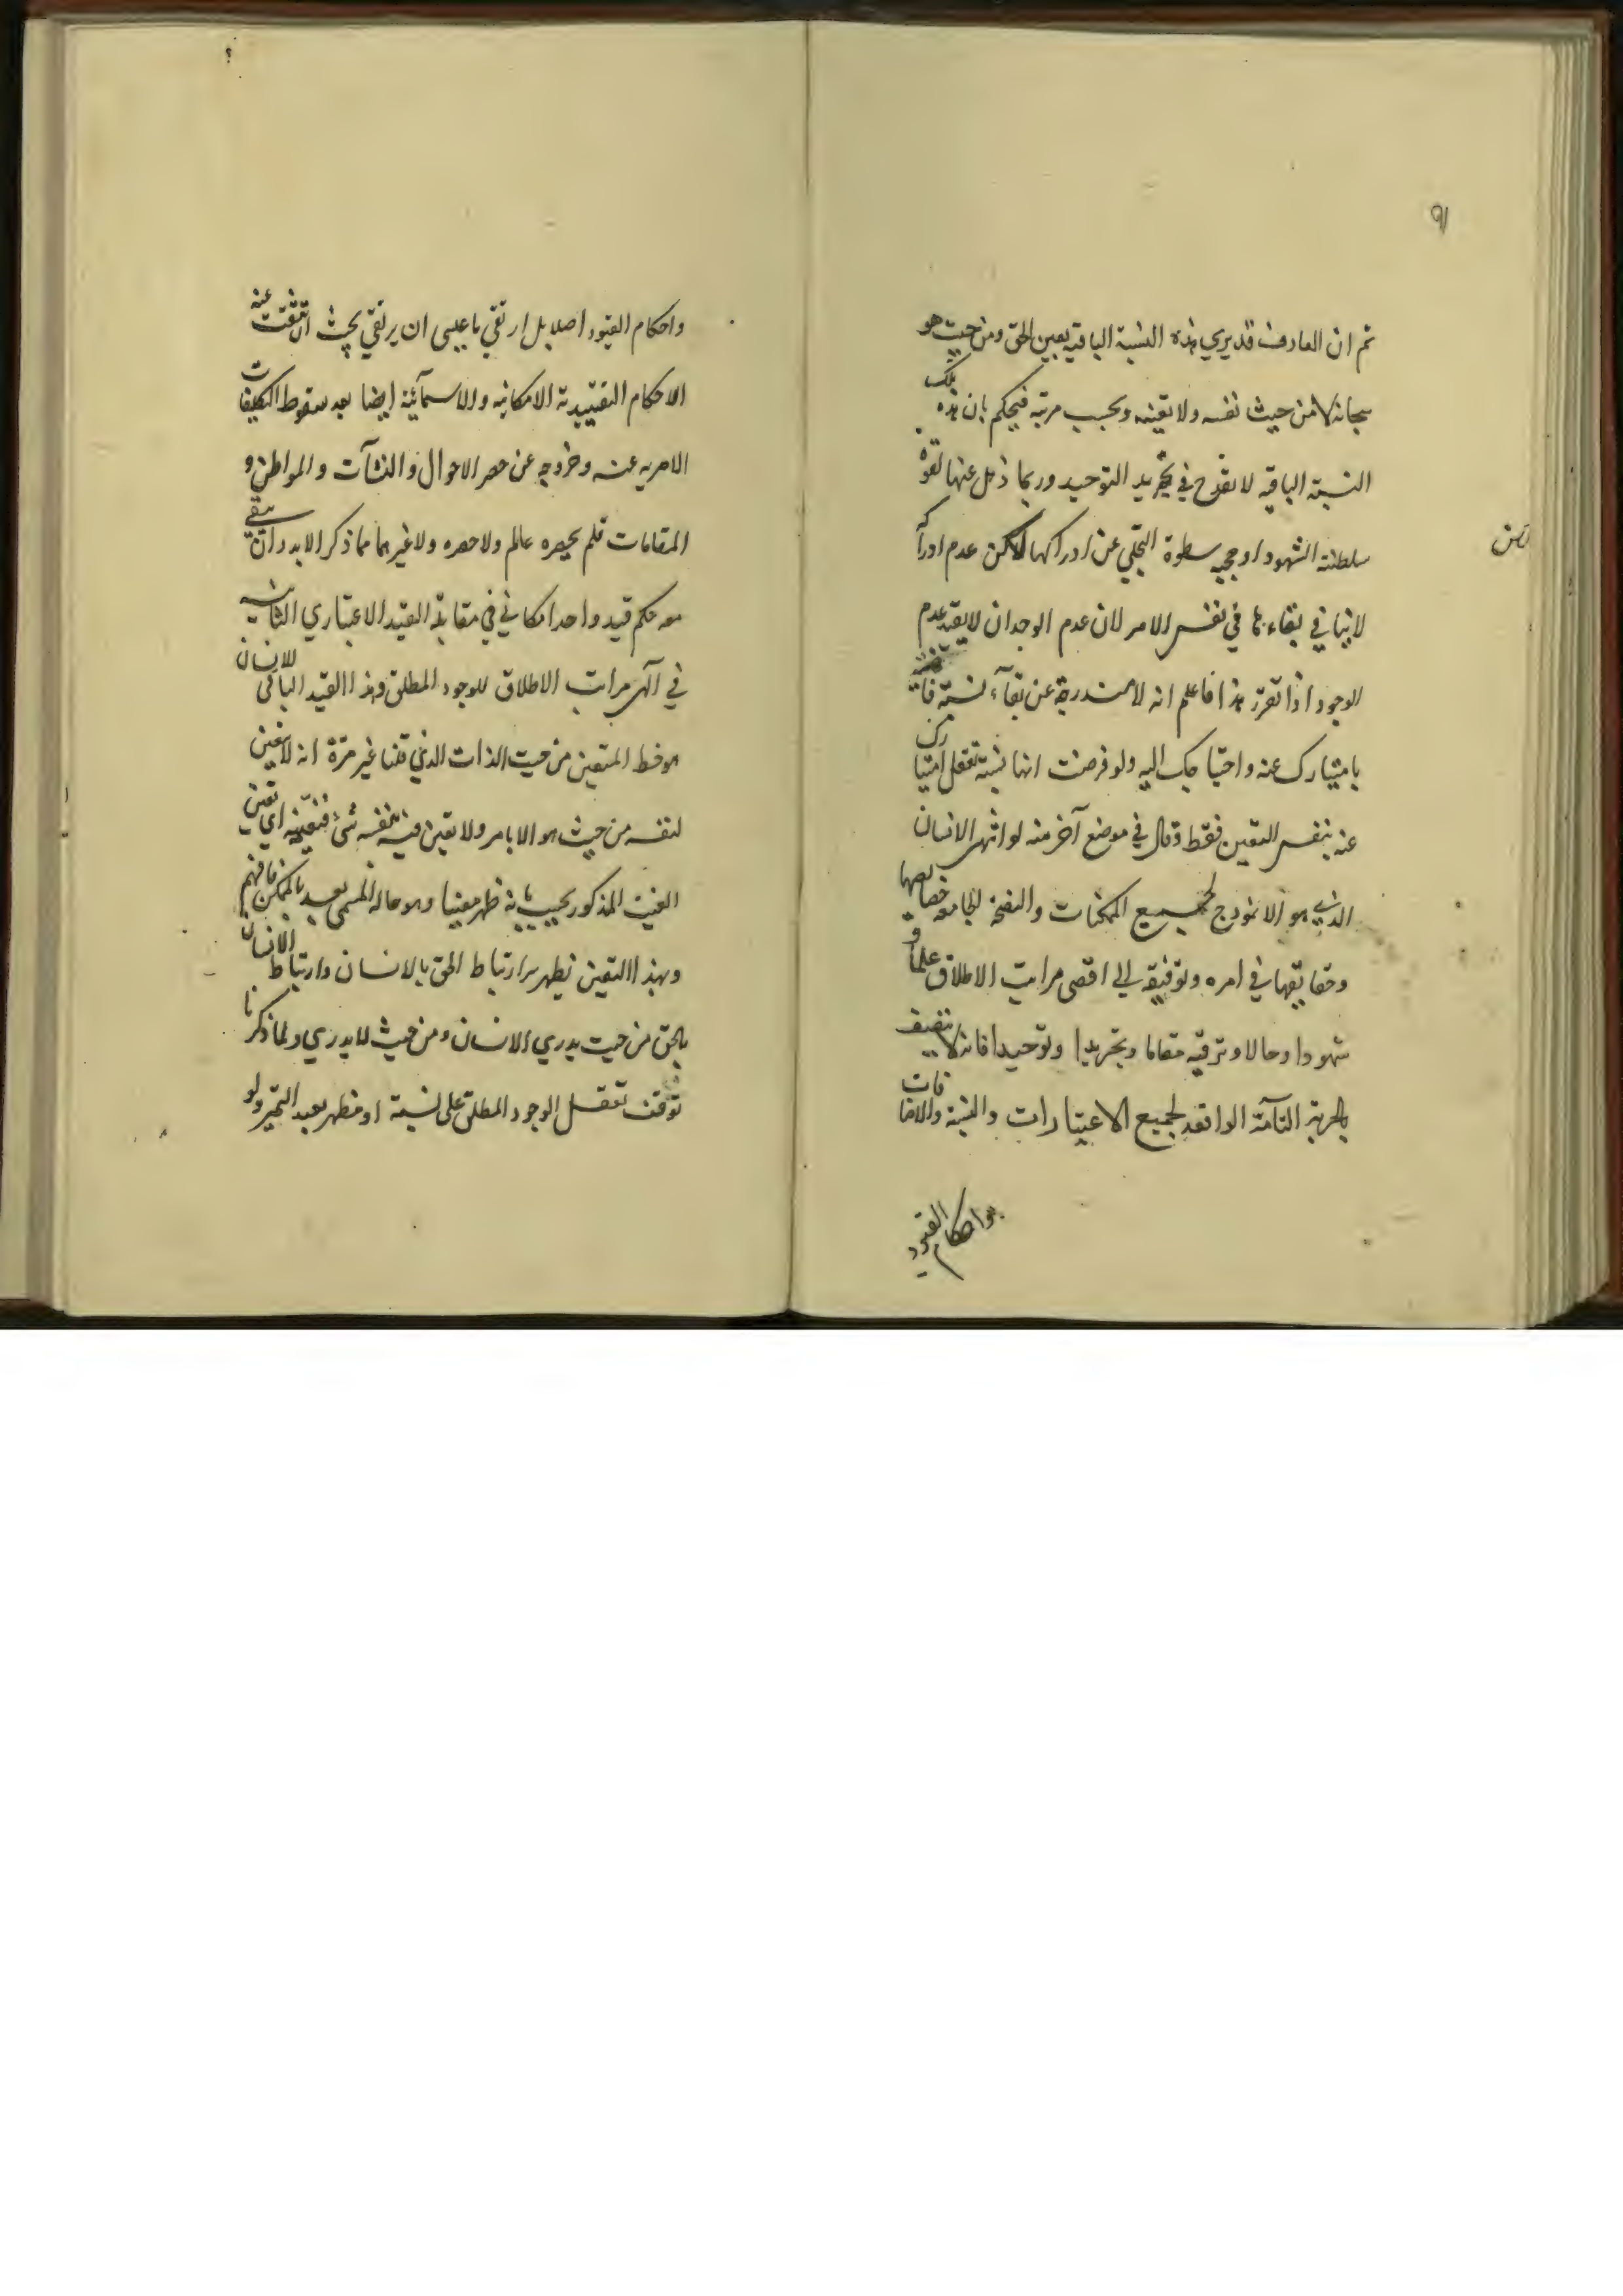 ٩١
ثم ان العارف قد يري هذه النسبة الباقية بعين الحق ومن حيث هو
سبحانه لا من حيث نفسه ولا بعينه وبحسب مرتبه فيحكم بان هذه تلك
النسبة الباقيه لا يقدح في تجريد التوحيد وربما ذهل عنها لقوة
سلطنة الشهود او حجبه سطوة التجلي عن ادراكها لاكن عدم ادراكه
لا ينافي بقاءها في نفس الامر لان عدم الوجدان لا يفيد عدم
الوجود اذا تقرر هذا فاعلم انه لا مندرجة عن بقآء نسبة
بامتيازك عنه واحتياجك اليه ولو فرضت انها نسبة تعقل امتيازك
عنه بنفس التعين فقط وقال في موضع آخر منه لو انتهى الانسان
الذي هو الانموذج لجميع الممكنات والنسخة الجامعه خصايصها
وحقايقها في امره وتوفيقه الى اقصى مراتب الاطلاق علما و
شهودا وحالا وترقيه مقاما وتجريدا وتوحيدا فانه لا يتصف
بالحرية التآمة الرافعه لجميع الاعتبارات والنسبة والاضافات
واحكام القيود
واحكام القيود اصلا بل ارتقي ما عسى ان يرتقي بحيث انتفت عنه
الاحكام التقييدية الامكانيه والاسمآئية ايضا بعد سقوط التكليفات
الامريه عنه وخروجه عن حصر الاحوال والنشآت والمواطن و
المقامات فلم يحصره عالم ولا حصره ولا غيرهما مما ذكر لا بد وان يبقي
معه حكم قيد واحد امكاني في مقابلة القيد الاعتباري الثابت
في آنهى مراتب الاطلاق للوجود المطلق وهذا القيد الباقي للانسان
هو حظ المتعين من حيث الذات الذي قلنا غير مرة انه لا يتعين
لنفسه من حيث هو الا بامر ولا يتعين فيه لنفسه شئ فتعينه اي تعين
الغيب المذكور بحسب ما به ظهر معينا وهو حاله المسمى بعد بالممكن فافهم
وبهذا التعين يظهر سر ارتباط الحق بالانسان وارتباط الانسان
بالحق من حيث يدري الانسان ومن حيث لا يدري ولما ذكرنا
توقف تعقل الوجود المطلق على نسبة او مظهر يفيد التميز ولو